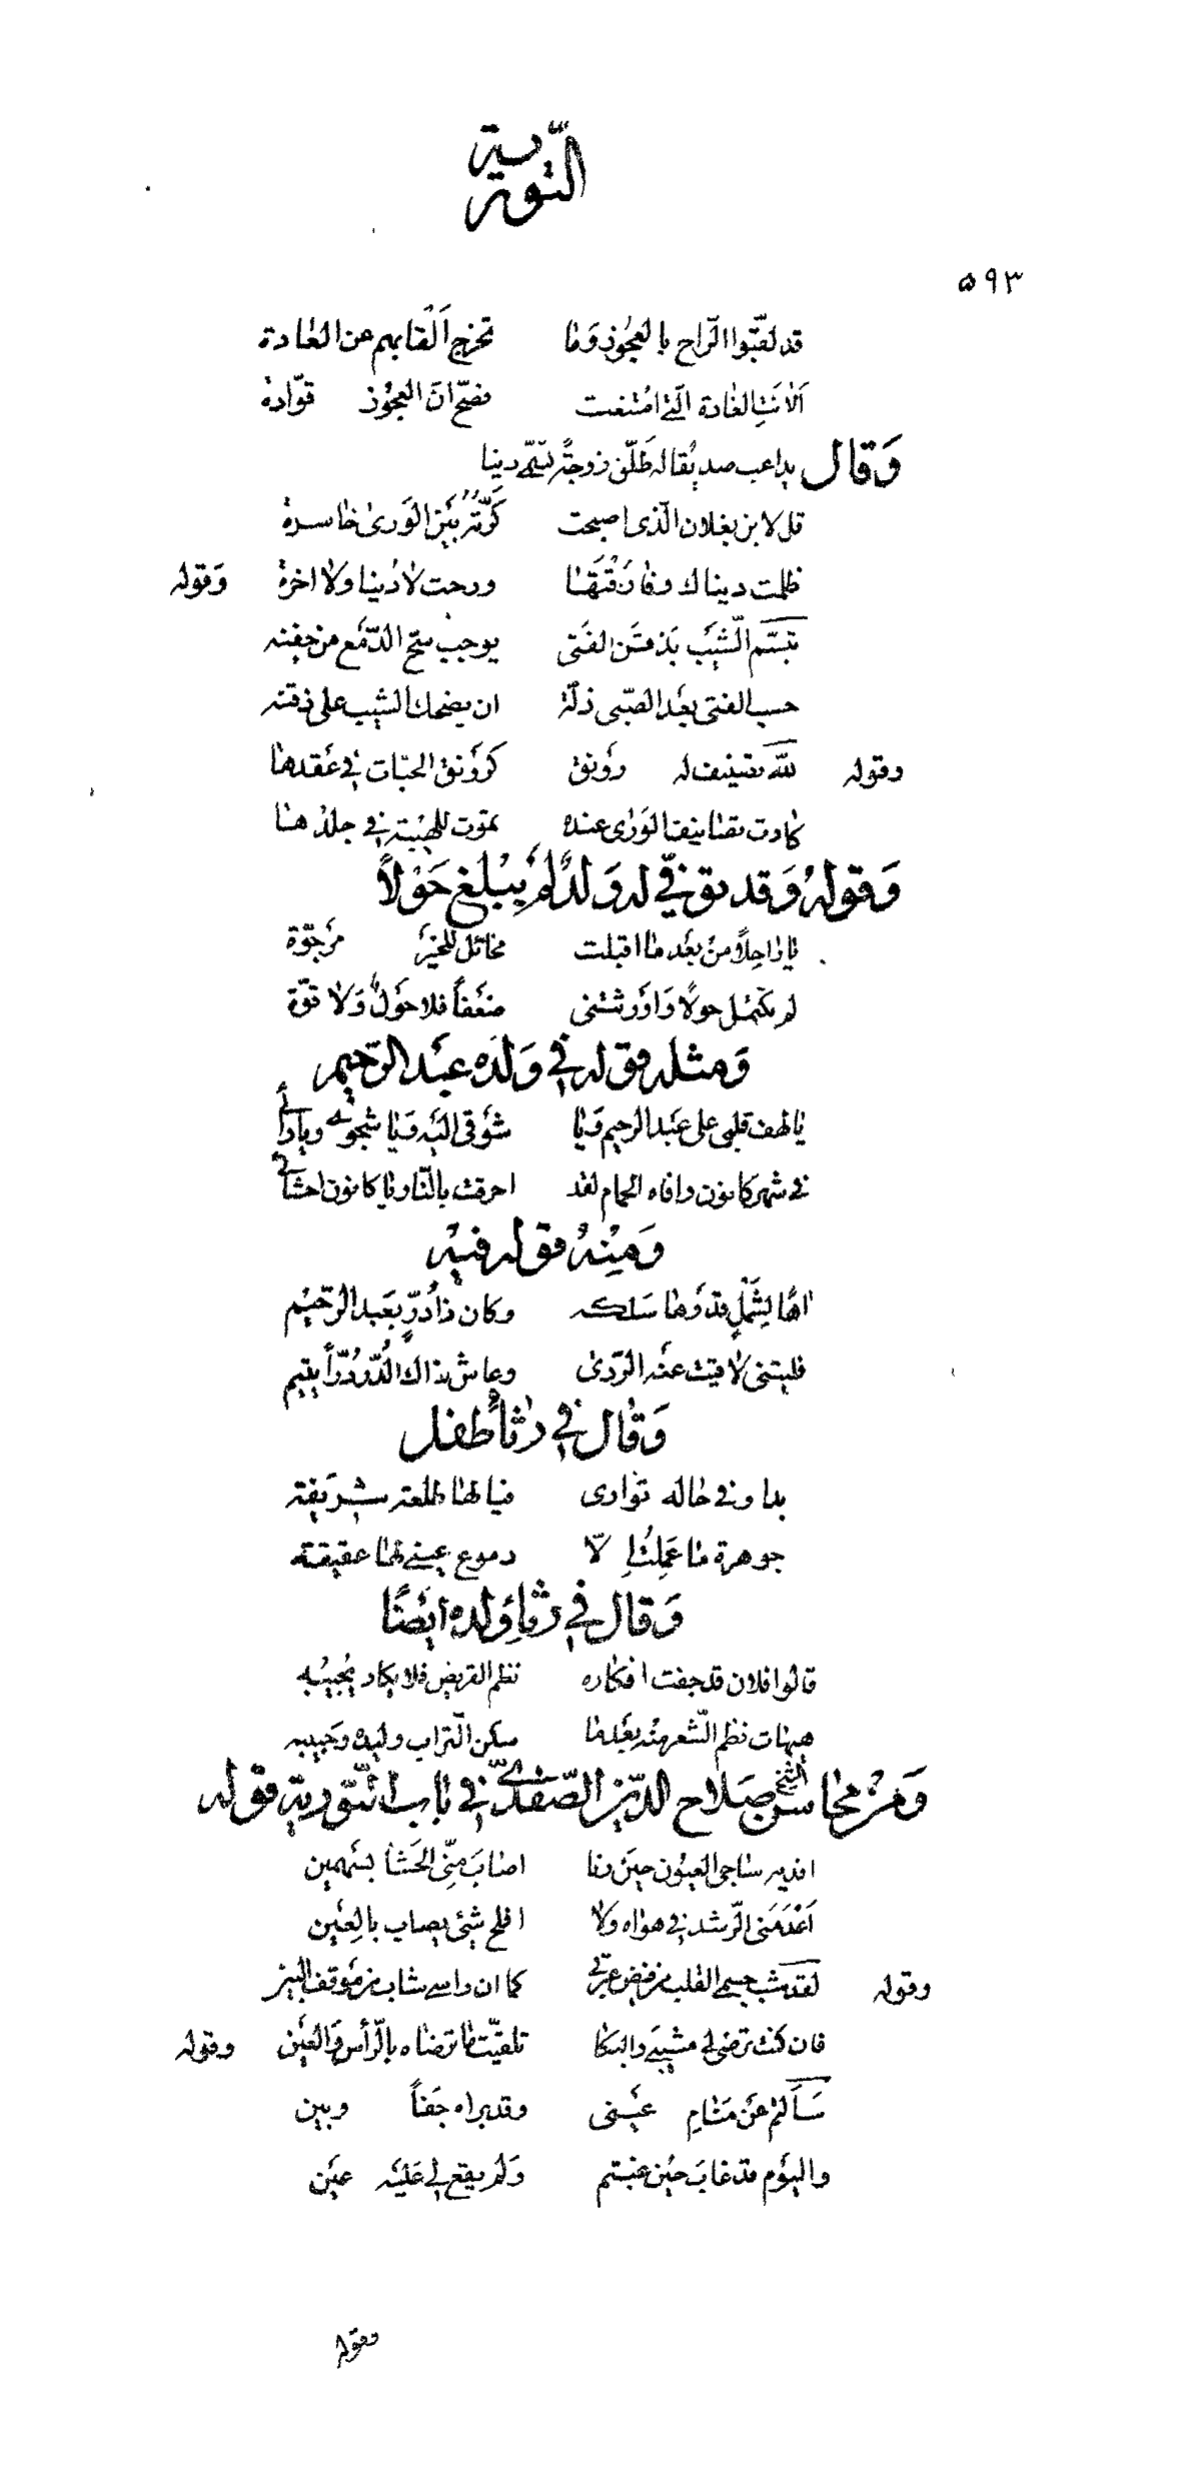 التورية
٥٩٣
قد لقّبوا الرّاح بالعجوز وَما تخرج اَلْقابهم عن العادة
اَلانَتِ الغادة الّتی امتنعت فصحّ انّ العجوز قوّادة
وَقال يداعب صديقا له طَلّق زوجةً تسمّی دنيا
قل لابن بغلان الّذی اصبحت كَرّته بَيْن الوَریٰ خاسرة
ظلمت دنياك وفارَقْتَهٰا ورحت لا دُنيا ولا اخرة وَقوله
تبسّم الشّيب بذقن الفتی يوجب سحّ الدّمع من جفنه
حسب الفتی بعْد الصّبی ذلّة ان يضحك الشيب علی ذقنه
وقوله للّه تصنيف له رَوْنق كرَوْنق الحبّات فی عَقدها
كادت تصانيف الوَری عنده تموت للهيبة فی جلدها
وَقولهُ وَقد توفّی له وَلدٌ لَم يَبْلغ حَوْلاً
يا راحِلاً منْ بعْد ما اقبلت مخائل للخيْر مرْجوّة
لم تكتمل حولاً وَاَوْرثتنی ضعْفاً فلا حَوْلٌ وَلا قوّة
وَمثله قوله فی وَلده عبْد الرّحيم
يا لهف قلبی علی عبْد الرحيم وَيا شوْقی اليْه وَيا شجوی ويا دائی
فی شهر كانون وافاه الحمام لقد احرقت بالنّار يا كانون احشائی
وَمِنْهُ قوله فيْه
اهًا لِشَمْلٍ قد وَها سَلكه وكان ذا دُرٍّ بعَبد الرّحيْم
فليتنی لاقيت عنْه الرّدیٰ وعاش ذاك الدُّرّ دُرّاً يتيم
وَقال فی رثاءِ طفل
بدا وفی حاله تواری فيا لها طلعة شريْفة
جوهرة ما عَمِلتُ الّا دموع عينی لها عقيقة
وَقال فی رثاءِ ولده ايْضًا
قالوا فلان قد جفت افكاره نظم القريض فلا يكاد يُجيْبُه
هيهات نظم الشّعر منْه بعْدما سكن التّراب وليده وَحبيبه
وَمنْ محاسن الشيخ صَلاح الدّين الصّفدیّ فی باب التّورية قوله
افديه ساجی العيُون حيَن رنا اصٰابَ منّی الحَشٰا بسَهمين
اَعْدَمَنی الرّشد فی هواه ولا افلح شیْ يصاب بالعيْن
وقوله لقد شبّ جسمی القلب من فيض عبرتی كما ان راسی شاب من مَوْقف البين
فان كنت ترضی لی مشيبی والبكا تلقيّت ما ترضاه بالرّأس وَالعيْن وقوله
سَألتم عَنْ منٰام عيْنی وقد براه جَفاً وبين
واليوْم قد غابَ حيْن غبتم وَلمْ يقع لی عَليْه عيْن
وقوله